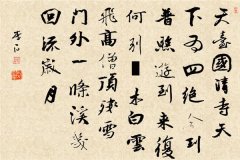 天臺國清寺天
下為四絕今到
普照遊到來復
何別木白雲
飛高僧頂殘雪
門外一條溪幾
回流歲月